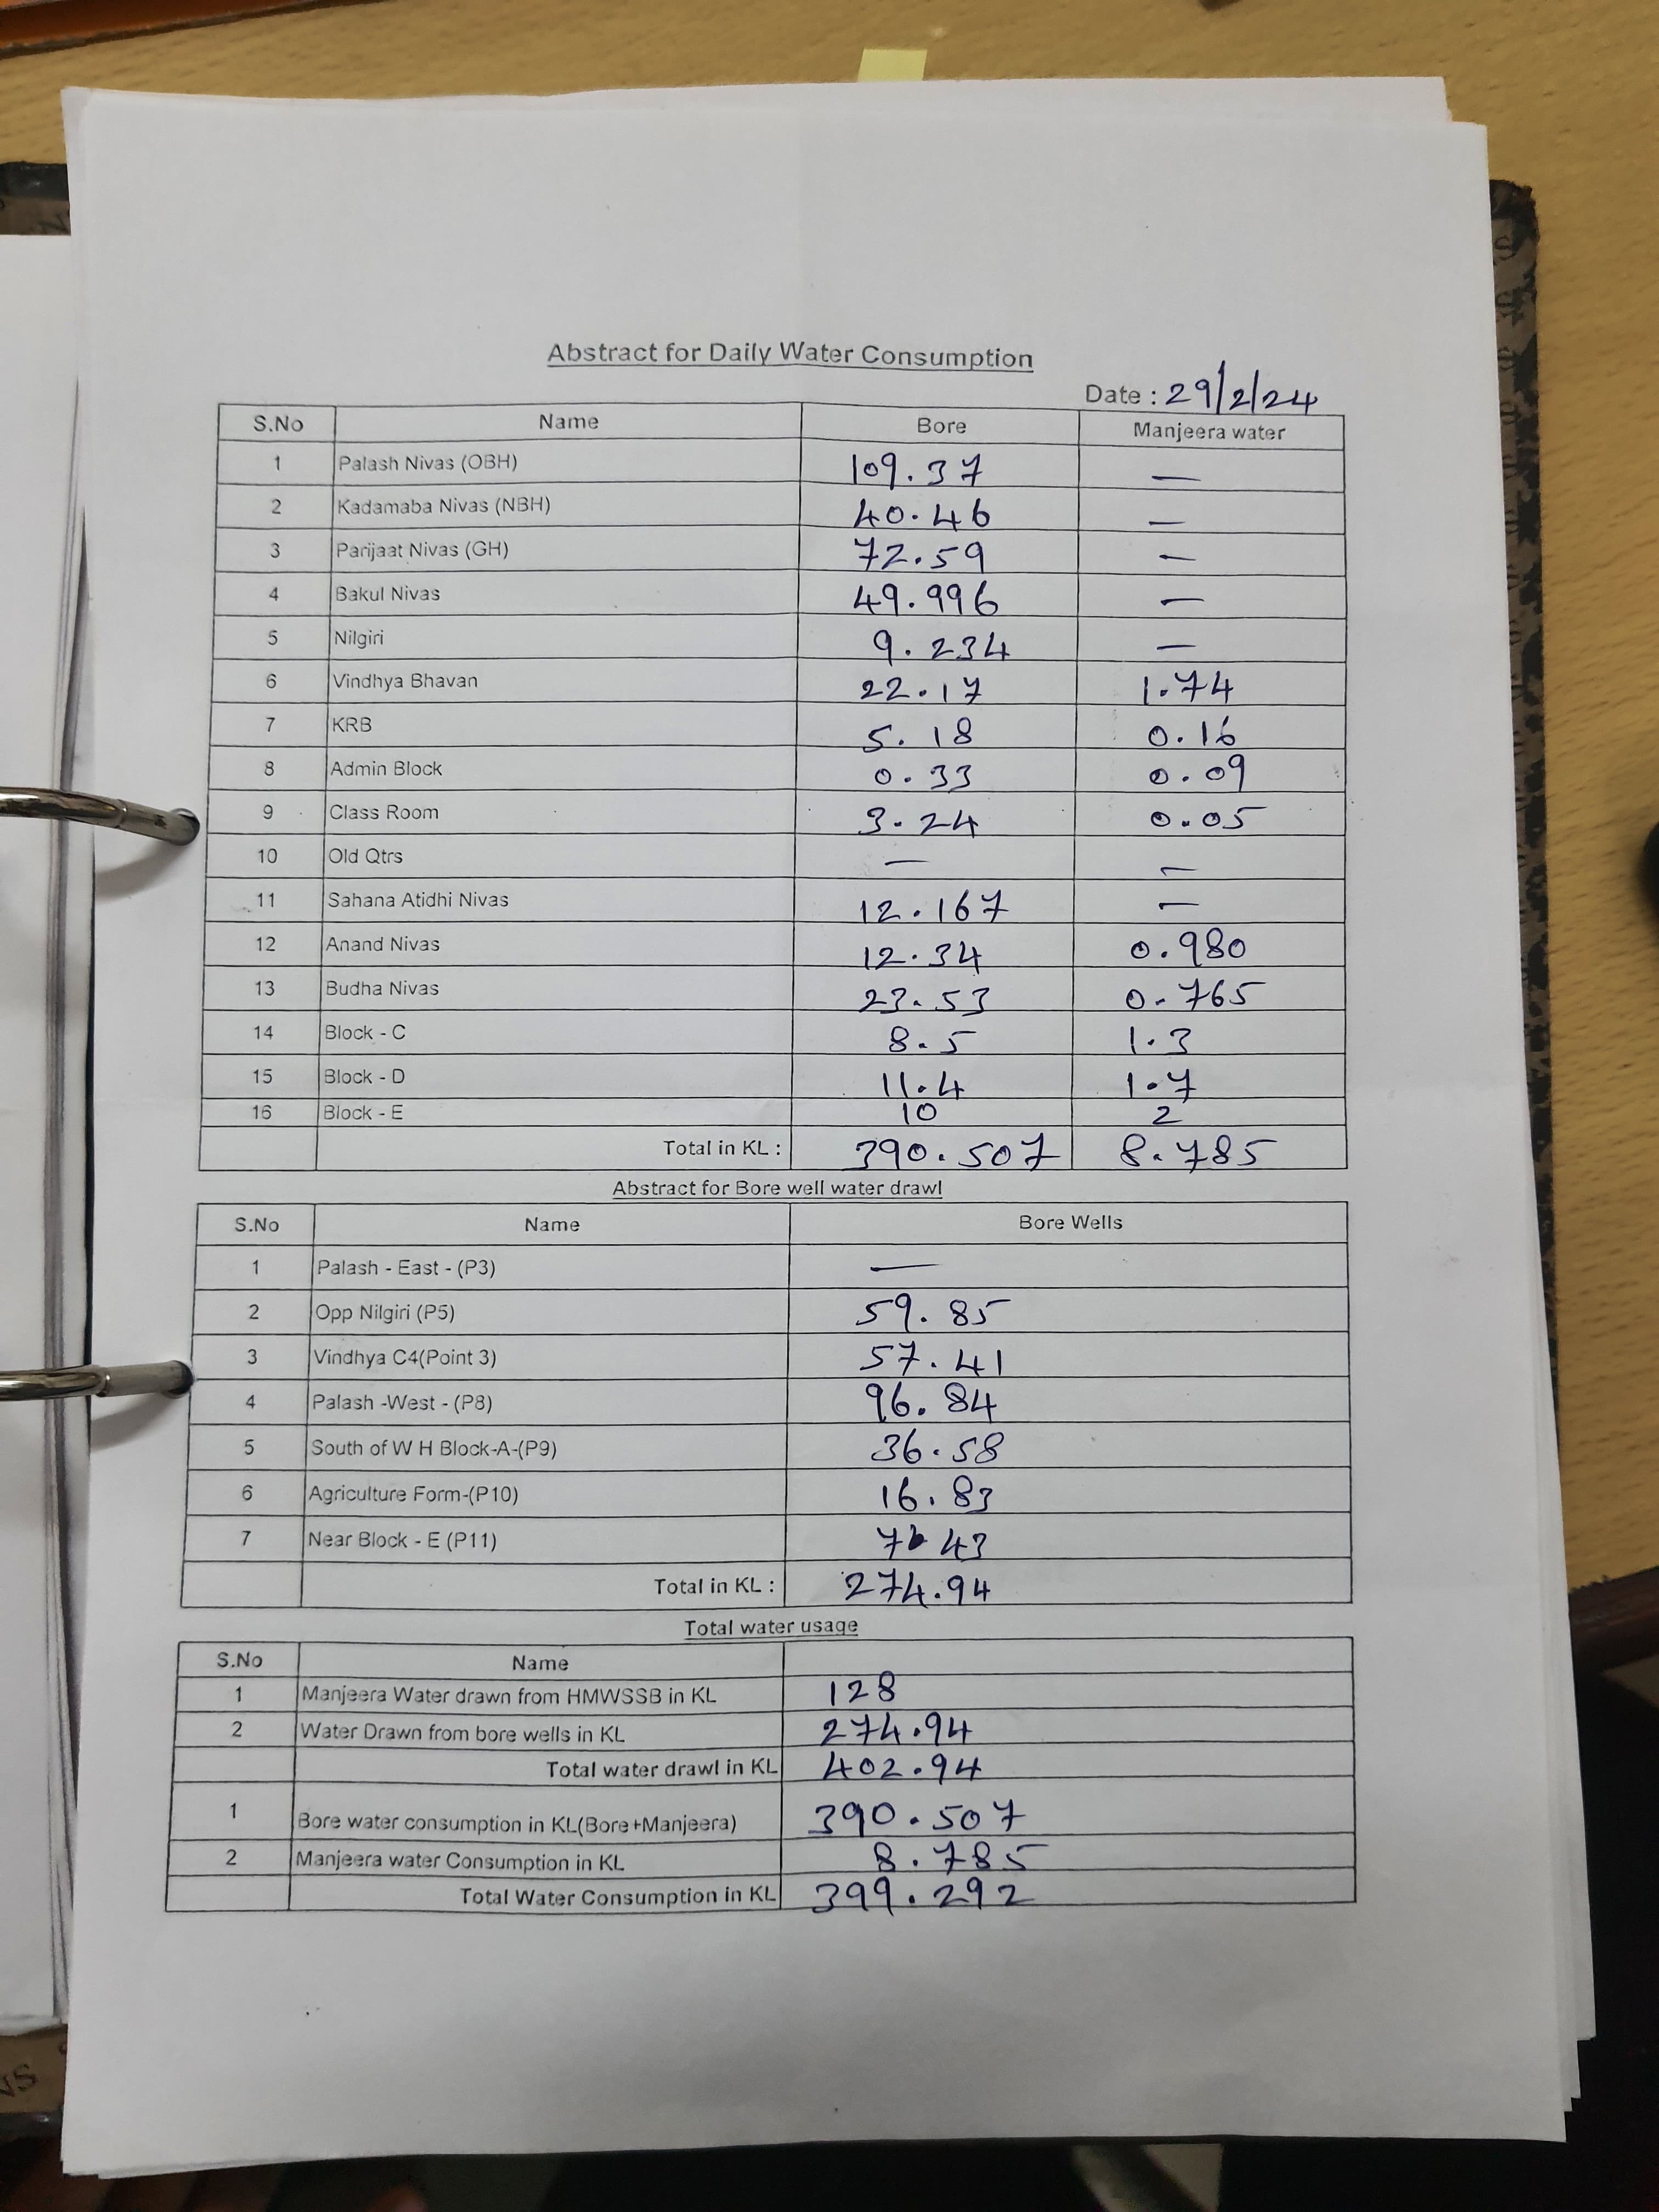 Abstract for Daily Water Consumption
Date : 29/2/24
S.No Name Bore Manjeera water
1 Palash Nivas (OBH) 109.37 —
2 Kadamaba Nivas (NBH) 40.46 —
3 Parijaat Nivas (GH) 72.59 —
4 Bakul Nivas 49.996 —
5 Nilgiri 9.234 —
6 Vindhya Bhavan 22.17 1.74
7 KRB 5.18 0.16
8 Admin Block 0.33 0.09
9 Class Room 3.24 0.05
10 Old Qtrs — —
11 Sahana Atidhi Nivas 12.167 —
12 Anand Nivas 12.34 0.980
13 Budha Nivas 23.53 0.765
14 Block - C 8.5 1.3
15 Block - D 11.4 1.7
16 Block - E 10 2
Total in KL : 390.507 8.785
Abstract for Bore well water drawl
S.No Name Bore Wells
1 Palash - East - (P3) —
2 Opp Nilgiri (P5) 59.85
3 Vindhya C4(Point 3) 57.41
4 Palash -West - (P8) 96.84
5 South of W H Block-A-(P9) 36.58
6 Agriculture Form-(P10) 16.83
7 Near Block - E (P11) 7.43
Total in KL : 274.94
Total water usage
S.No Name
1 Manjeera Water drawn from HMWSSB in KL 128
2 Water Drawn from bore wells in KL 274.94
Total water drawl in KL 402.94
1 Bore water consumption in KL(Bore+Manjeera) 390.507
2 Manjeera water Consumption in KL 8.785
Total Water Consumption in KL 399.292